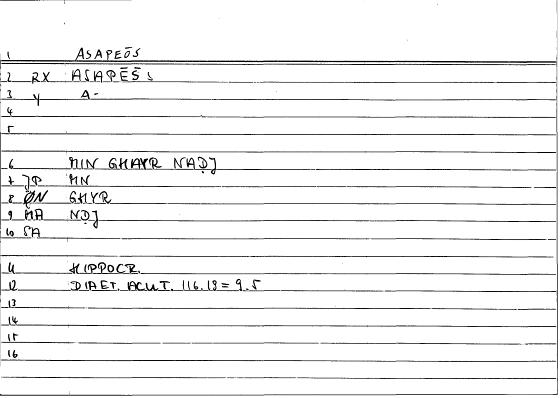 1 ASAPEŌS
2 RX ASAPĒS̄
3 Y A-
4
5
6 MIN GHAYR NAḌJ
7 JP MN
8 ØN GHYR
9 MA NḌJ
10 SA
11 HIPPOCR.
12 DIAET. ACUT. 116.18 = 9.5
13
14
15
16